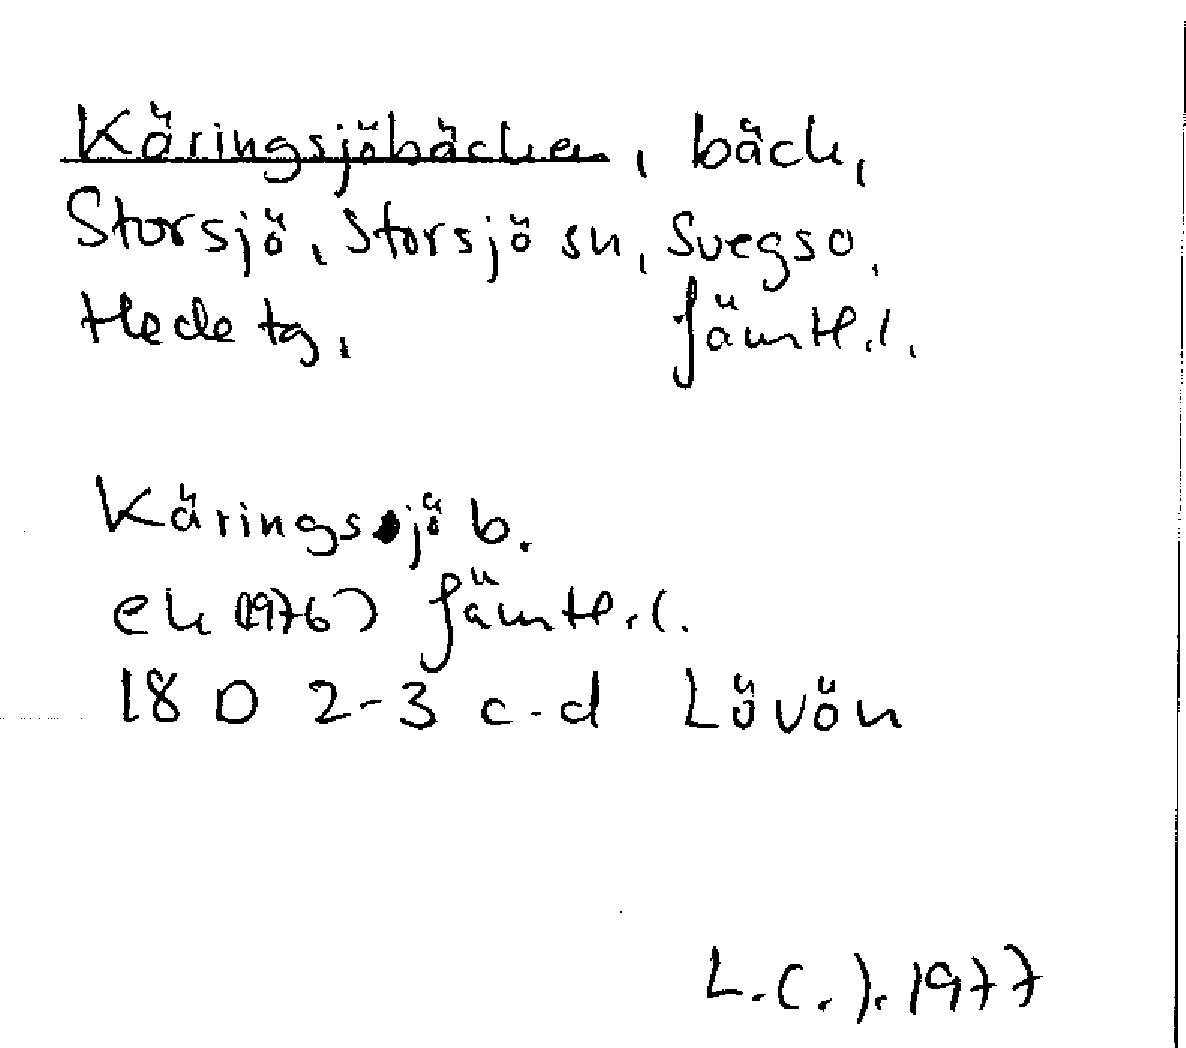 Käringsjöbäcken, bäck,
Storsjö, Storsjö sn, Svegs o,
Hede tg, Jämtl.l.
Käringsjö b.
ek (1976) Jämtl.l.
18 D 2-3 c-d Lövön
1977